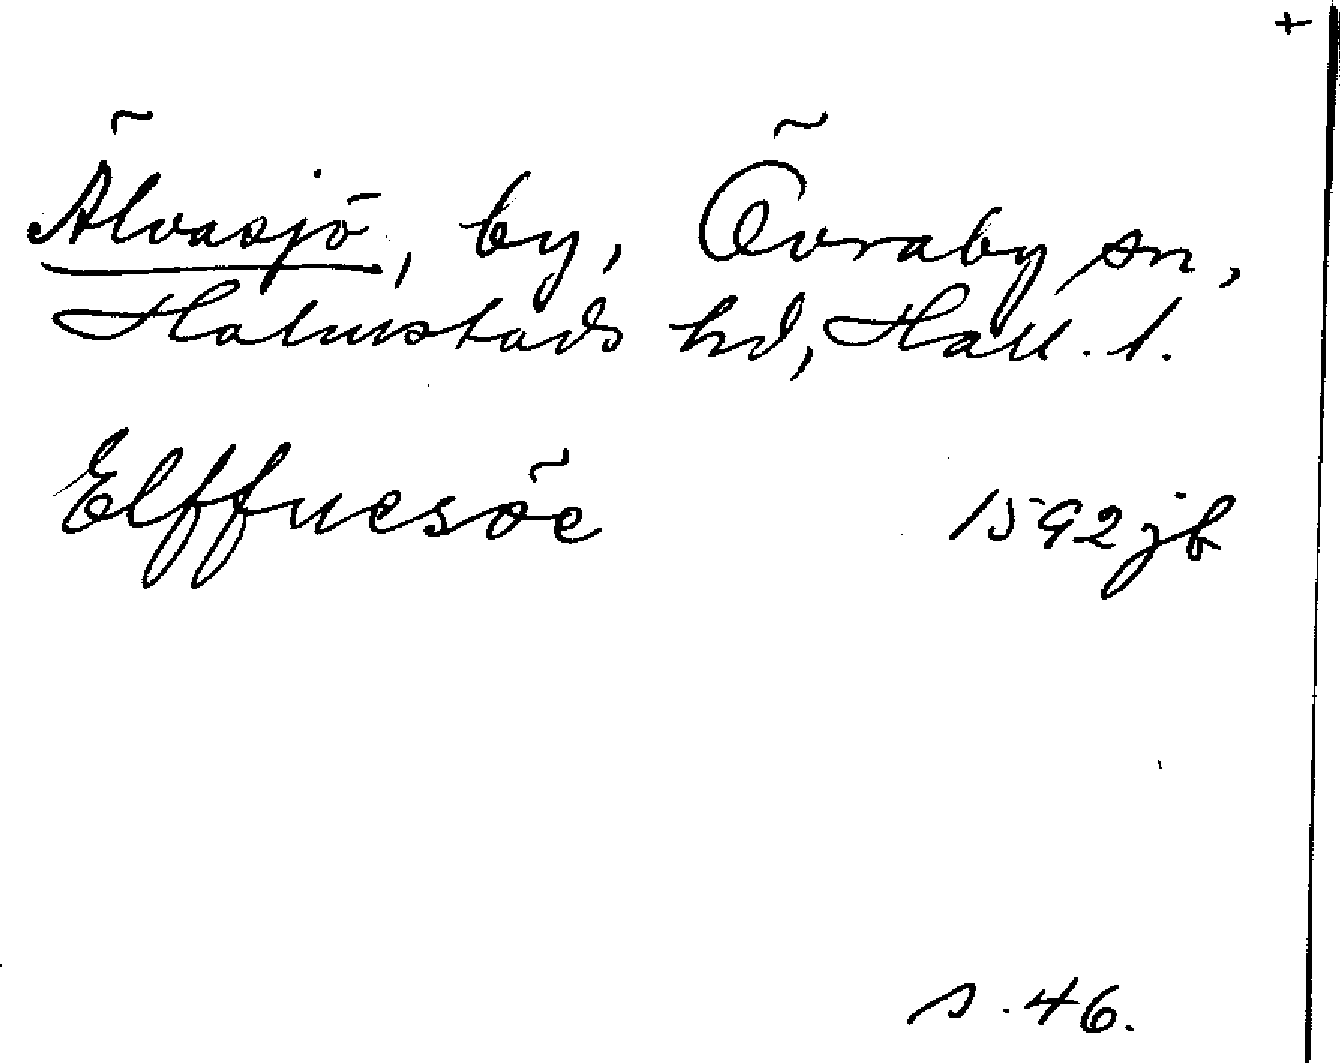 +
Älvasjö, by, Övraby sn,
Halmstads hd, Hall. l.
Elffuesöe 1592 jb
s. 46.